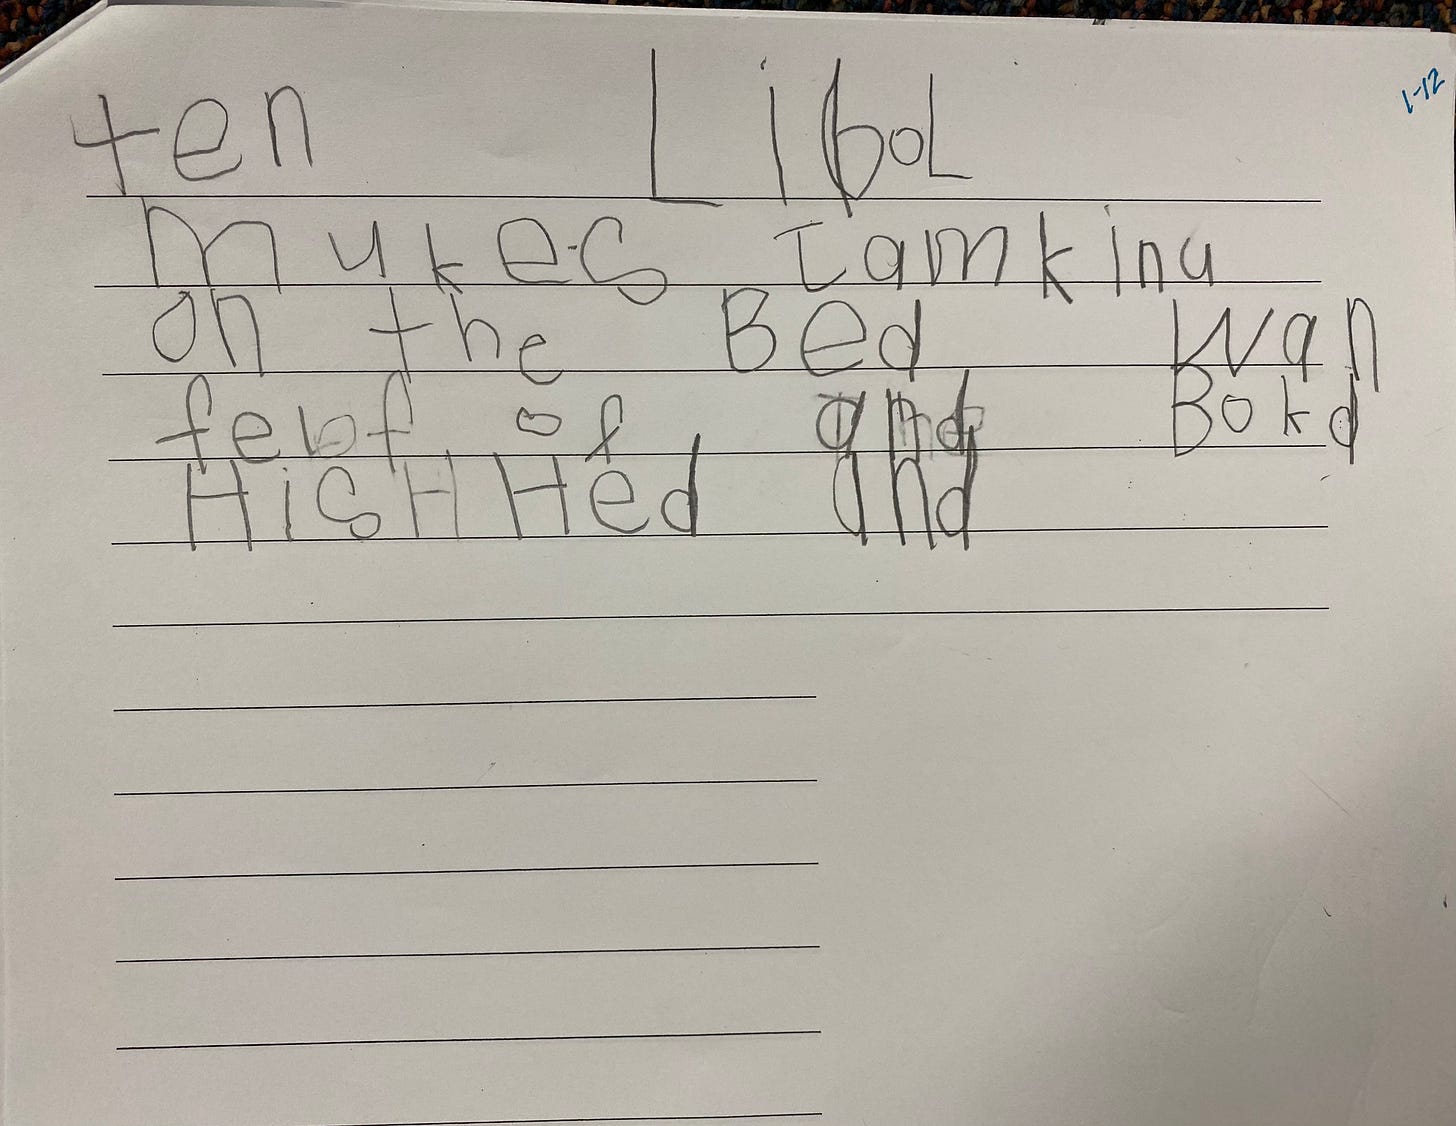 ten Libol 1-12
mukes Iamkinu
on the Bed Wan
felof of and Bokd
HisH Hed and